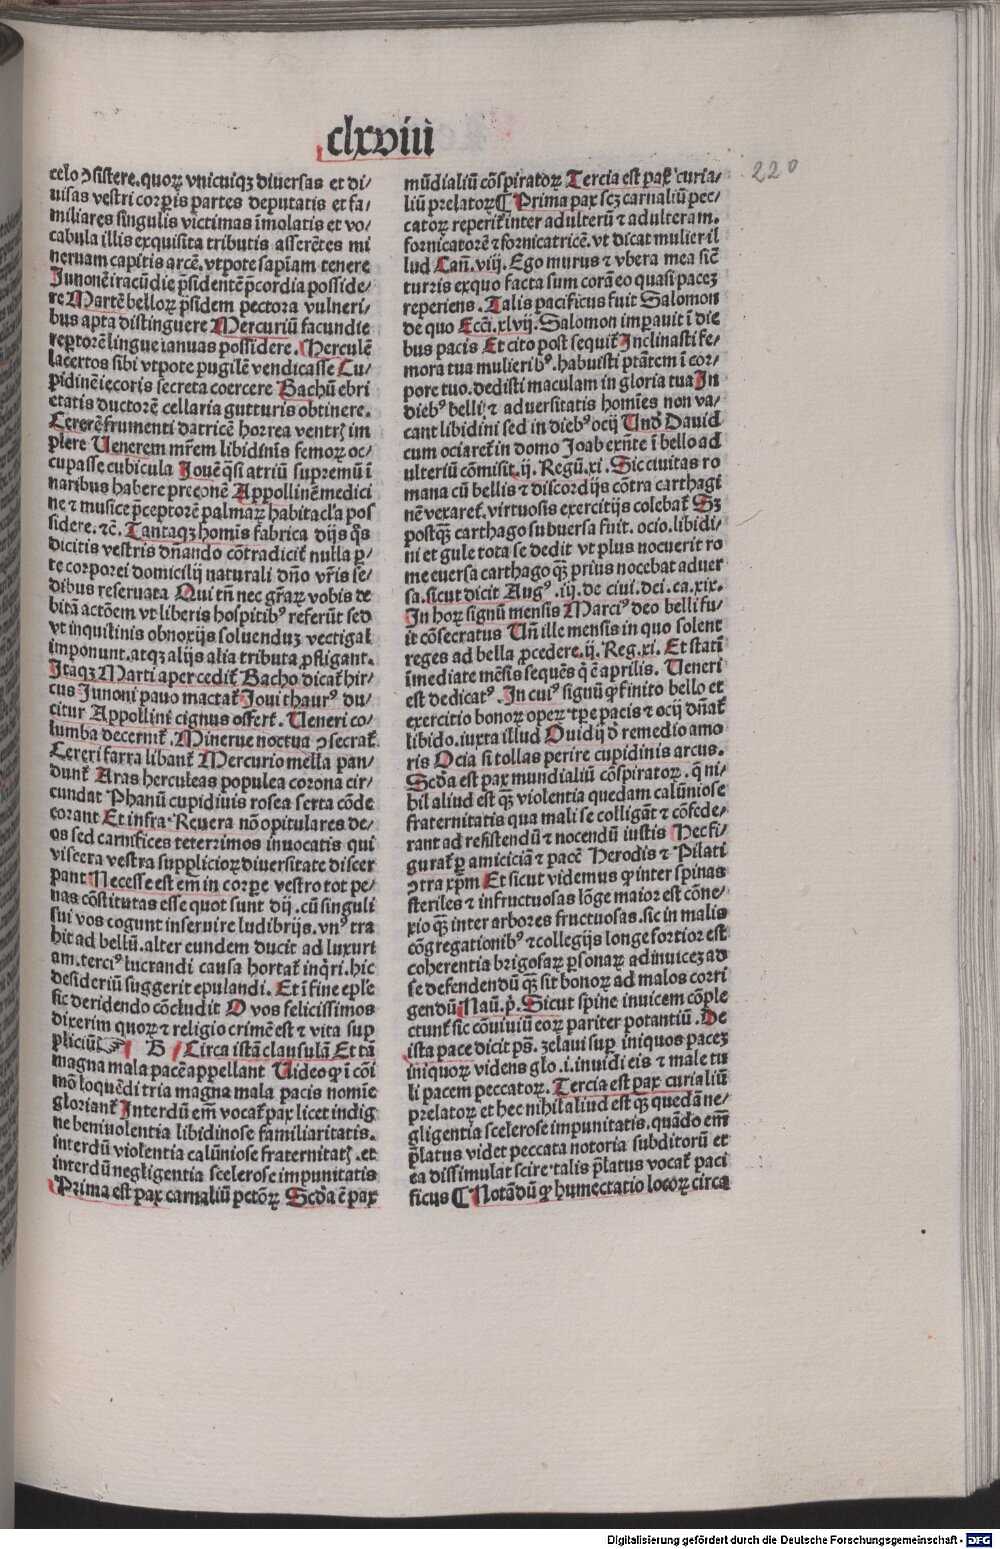 clxviii
220
celo ↄsistere.quoꝝ vnicuiqꝫ diuersas et di/
uisas vestri corpis partes deputatis et fa/
miliares singulis victimas īmolatis et vo/
cabula illis exquisita tributis asserētes mi
neruam capitis arcē.vtpote sapīam tenere
Junonē iracūdie p̄sidentē p̄cordia posside/
re Martē belloꝝ p̄sidem pectora vulneri/
bus apta distinguere Mercuriū facundie
reptorē lingue ianuas possidere. Herculē
lacertos sibi vtpote pugilē vendicasse Cu/
pidinē iecoris secreta coercere Bachū ebri
etatis ductorē cellaria gutturis obtinere.
Cererē frumenti datricē horrea ventrꝭ im
plere Uenerem mr̄em libidinis femoꝝ oc/
cupasse cubicula Jouē q̄si atriū supremū ī
naribus habere preconē Appollinē medici
ne ⁊ musice p̄ceptorē palmaꝝ habitacl'a pos
sidere.⁊c̄. Tantaqꝫ homīs fabrica dijs q̄s
dicitis vestris dn̄ando cōtradicit̉ nulla p̲/
te corporei domicilij naturali dn̄o vr̄is se/
dibus reseruata Qui tn̄ nec gr̄aꝝ vobis de
bitā actōem vt liberis hospitibꝰ referūt sed
vt inquilinis obnoxijs soluenduꝫ vectigal
imponunt.atqꝫ alijs alia tributa p̲fligant.
Itaqꝫ Marti aper cedit̉ Bacho dicat̉ hir/
cus Junoni pauo mactat̉ Joui thaurꝰ du/
citur Appollini cignus offert̉. Ueneri co/
lumba decernit̉. Minerue noctua ↄsecrat̉
Cereri farra libant̉ Mercurio mella pan/
dunt̉ Aras herculeas populea corona cir/
cundat Phanū cupidinis rosea serta cōde
corant Et infra Reuera nō opitulares de/
os sed carnifices teterrimos inuocatis qui
viscera vestra supplicioꝝ diuersitate discer
pant Necesse est em̄ in corpe vestro tot pe/
nas cōstitutas esse quot sunt dij.cū singuli
sui vos cogunt inseruire ludibrijs.vnꝰ tra
hit ad bellū.alter eundem ducit ad luxuri
am.terciꝰ lucrandi causa hortat̉ inq̄ri.hic
desideriū suggerit epulandi. Et ī fine ep̄le
sic deridendo cōcludit O vos felicissimos
dixerim quoꝝ ⁊ religio crimē est ⁊ vita sup
pliciū ☞ B Circa istā clausulā Et tā
magna mala pacē appellant Uideo ꝙ ī cōi
mō loquēdi tria magna mala pacis nomīe
gloriant̉ Interdū em̄ vocat̉ pax licet indig
ne beniuolentia libidinose familiaritatis.
interdū violentia calūniose fraternitatꝭ.et
interdū negligentia scelerose impunitatis
Prima est pax carnaliū pctōꝝ Scd̄a ē pax
mūdialiū cōspiratoꝝ Tercia est pax curia-
liū prelatoꝝ ¶ Prima pax scꝫ carnaliū pec/
catoꝝ reperit̉ inter adulterū ⁊ adulteram.
fornicatorē ⁊ fornicatricē.vt dicat mulier il
lud Can̄.viij.Ego murus ⁊ vbera mea sic̄
turris exquo facta sum corā eo quasi paceꝫ
reperiens. Talis pacificus fuit Salomon
de quo Ecc̄i.xlvij.Salomon impauit ī die
bus pacis Et cito post sequit̉ Inclinasti fe/
mora tua mulieribꝰ.habuisti ptātem ī cor/
pore tuo.dedisti maculam in gloria tua In
diebꝰ belli ⁊ aduersitatis homīes non va/
cant libidini sed in diebꝰ ocij Und̄ Dauid
cum ociaret̉ in domo Joab exn̄te ī bello ad
ulteriū cōmisit.ij. Regū.xi. Sic ciuitas ro
mana cū bellis ⁊ discordijs cōtra carthagi
nē vexaret̉.virtuosis exercitijs colebat̉ Sꝫ
postqꝫ̄ carthago subuersa fuit. ocio.libidi/
ni et gule tota se dedit vt plus nocuerit ro
me euersa carthago qꝫ̄ prius nocebat aduer
sa.sicut dicit Augꝰ.iij.de ciui.dei.ca.xix.
In hoꝝ signū mensis Marciꝰ deo belli fu/
it cōsecratus Un̄ ille mensis in quo solent
reges ad bella p̲cedere.ij. Reg.xi. Et statī
īmediate mēsis sequēs q̄ ē aprilis. Ueneri
est dedicatꝰ. In cuiꝰ signū ꝙ finito bello et
exercitio bonoꝝ opeꝝ ⁊ tp̄e pacis ⁊ ocij dn̄at̉
libido.iuxta illud Ouidij ď remedio amo
ris Ocia si tollas periere cupidinis arcus.
Scd̄a est pax mundialiū cōspiratoꝝ.q̄ ni/
hil aliud est qꝫ̄ violentia quedam calūniose
fraternitatis qua mali se colligāt ⁊ cōfede/
rant ad resistendū ⁊ nocendū iustis Hec fi/
gurat̉ p̲ amiciciā ⁊ pacē Herodis ⁊ Pilati
ↄtra xp̄m Et sicut videmus ꝙ inter spinas
steriles ⁊ infructuosas lōge maior est cōne/
xio qꝫ̄ inter arbores fructuosas.sic in malis
cōgregationibꝰ ⁊ collegijs longe fortior est
coherentia brigosaꝝ p̲sonaꝝ adinuiceꝫ ad
se defendendū qꝫ̄ sit bonoꝝ ad malos corri
gendū Naū.p̊. Sicut spine inuicem cōple
ctunt̉ sic cōuiuiū eoꝝ pariter potantiū. De
ista pace dicit ps̄. zelaui sup iniquos paceꝫ
iniquoꝝ videns glo.i.inuidi eis ⁊ male tu
li pacem peccatoꝝ. Tercia est pax curialiū
prelatoꝝ et hec nihil aliud est qꝫ̄ quedā ne/
gligentia scelerose impunitatis.quādo em̄
p̄latus videt peccata notoria subditoꝝ et
ea dissimulat scire talis p̄latus vocat̉ paci
ficus ¶ Notādū ꝙ humectatio locoꝝ circa
Digitalisierung gefördert durch die Deutsche Forschungsgemeinschaft - DFG